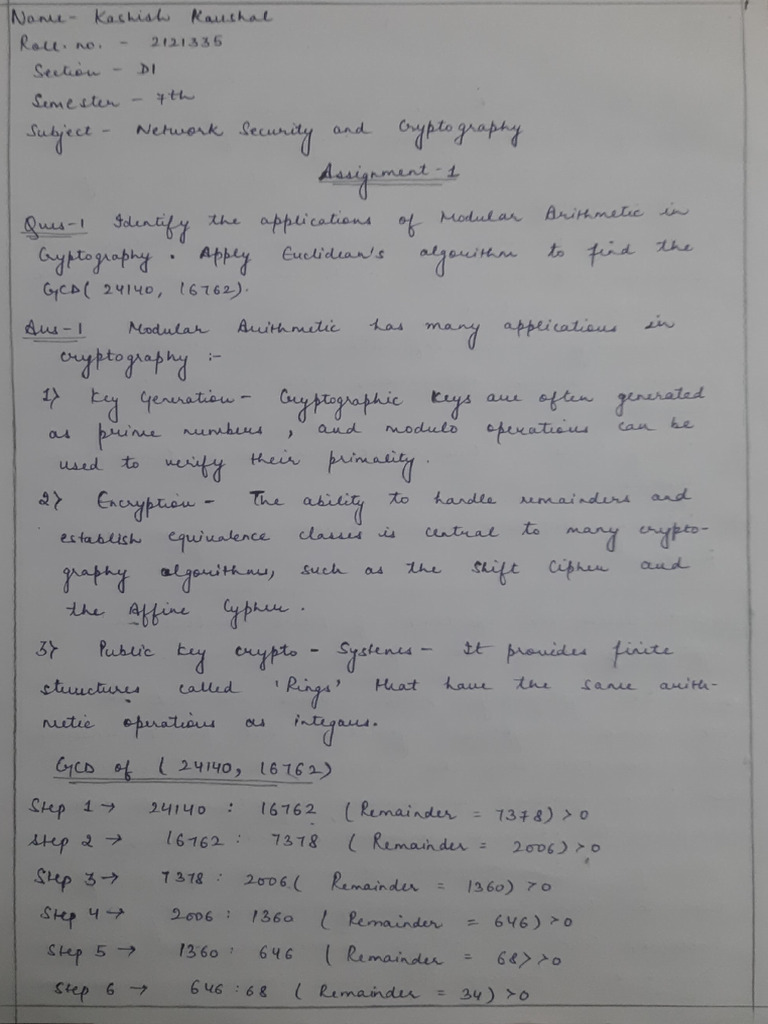 Name- Kashish Kaushal
Roll. no. - 2121335
Section - D1
Semester - 7th
Subject - Network Security and Cryptography
Assignment-1
Ques-1 Identify the applications of Modular Arithmetic in
Cryptography. Apply Euclidean's algorithm to find the
GCD( 24140, 16762).
Ans-1 Modular Arithmetic has many applications in
cryptography :-
1) Key Generation - Cryptographic keys are often generated
as prime numbers, and modulo operations can be
used to verify their primality.
2) Encryption - The ability to handle remainders and
establish equivalence classes is central to many crypto-
graphy algorithms, such as the Shift Cipher and
the Affine Cypher.
3) Public Key crypto - Systems - It provides finite
structures called 'Rings' that have the same arith-
metic operations as integars.
GCD of ( 24140, 16762)
Step 1 → 24140 : 16762 (Remainder = 7378) > 0
Step 2 → 16762 : 7378 ( Remainder = 2006) > 0
Step 3 → 7378 : 2006 ( Remainder = 1360) > 0
Step 4 → 2006 : 1360 ( Remainder = 646) > 0
Step 5 → 1360 : 646 ( Remainder = 68) > 0
Step 6 → 646 : 68 ( Remainder = 34) > 0